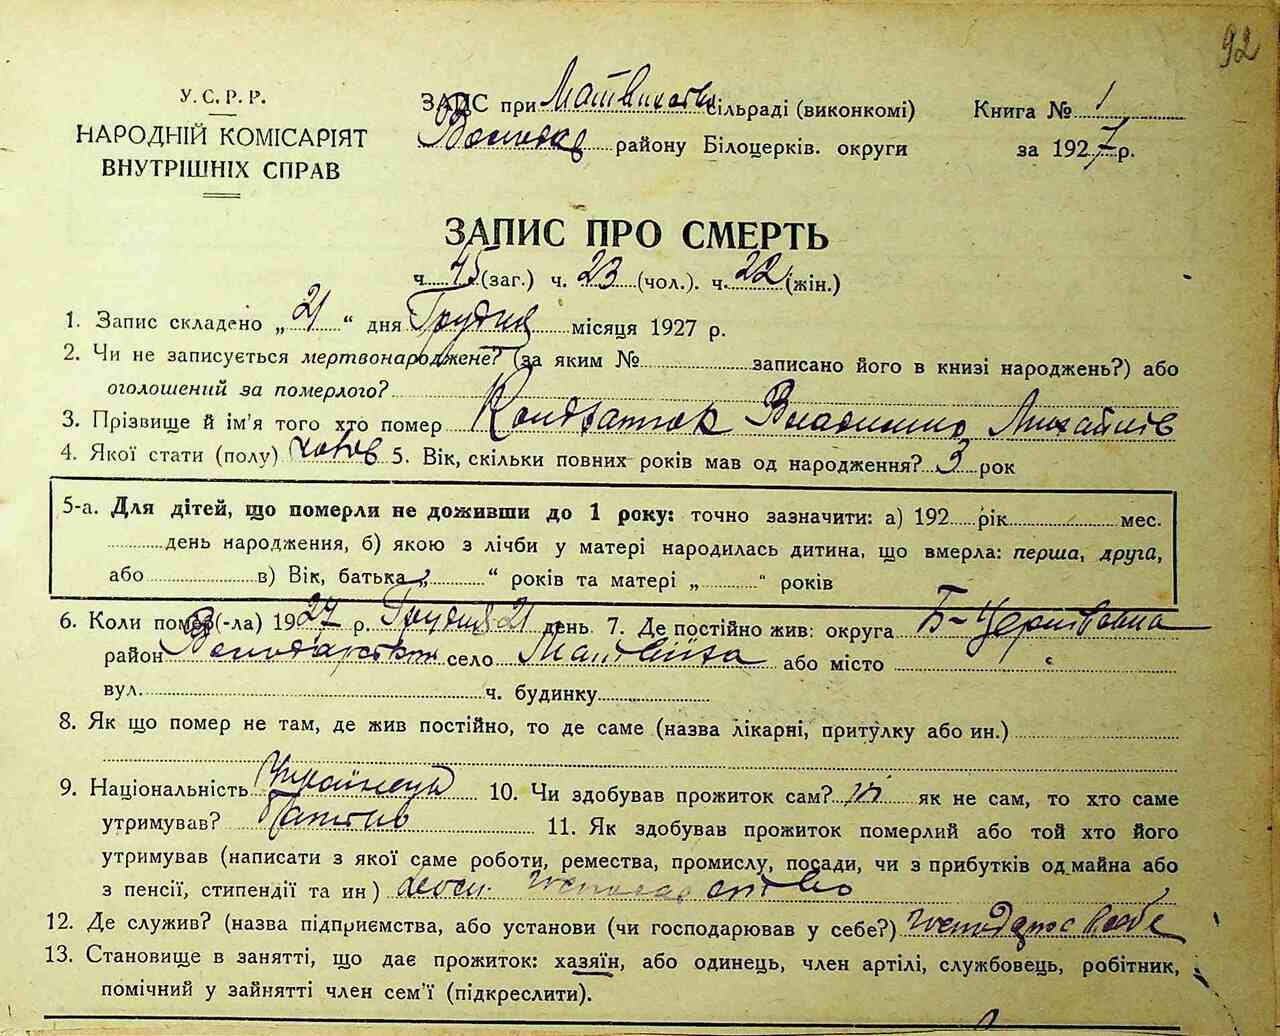 92
У. С. Р. Р.
НАРОДНІЙ КОМІСАРІЯТ
ВНУТРІШНІХ СПРАВ
ЗАПИС при сільраді (виконкомі)
району Білоцерків. округи
Книга № 1
за 1927 р.
ЗАПИС ПРО СМЕРТЬ
ч. 45 (заг.) ч. 23 (чол.). ч. 22 (жін.)
1. Запис складено „ 21 “ дня Грудня місяця 1927 р.
2. Чи не записується мертвонароджене? (за яким № записано його в книзі народжень?) або
оголошений за померлого?
3. Прізвище й ім'я того хто помер Кондратюк Владимир Михайлів
4. Якої стати (полу) 5. Вік, скільки повних років мав од народження? 3 рок
5-а. Для дітей, що померли не доживши до 1 року: точно зазначити: а) 192 рік мес.
день народження, б) якою з лічби у матері народилась дитина, що вмерла: перша, друга,
або в) Вік, батька „ “ років та матері „ “ років
6. Коли помер (-ла) 1927 р. Грудня 21 день 7. Де постійно жив: округа Б-Церківська
район Володарський село Матвіїха або місто
вул. ч. будинку
8. Як що помер не там, де жив постійно, то де саме (назва лікарні, притулку або ин.)
9. Національність Українець 10. Чи здобував прожиток сам? ні як не сам, то хто саме
утримував? Батько 11. Як здобував прожиток померлий або той хто його
утримував (написати з якої саме роботи, ремества, промислу, посади, чи з прибутків од майна або
з пенсії, стипендії та ин)
12. Де служив? (назва підприємства, або установи (чи господарював у себе?)
13. Становище в занятті, що дає прожиток: хазяїн, або одинець, член артілі, службовець, робітник,
помічний у зайнятті член сем'ї (підкреслити).